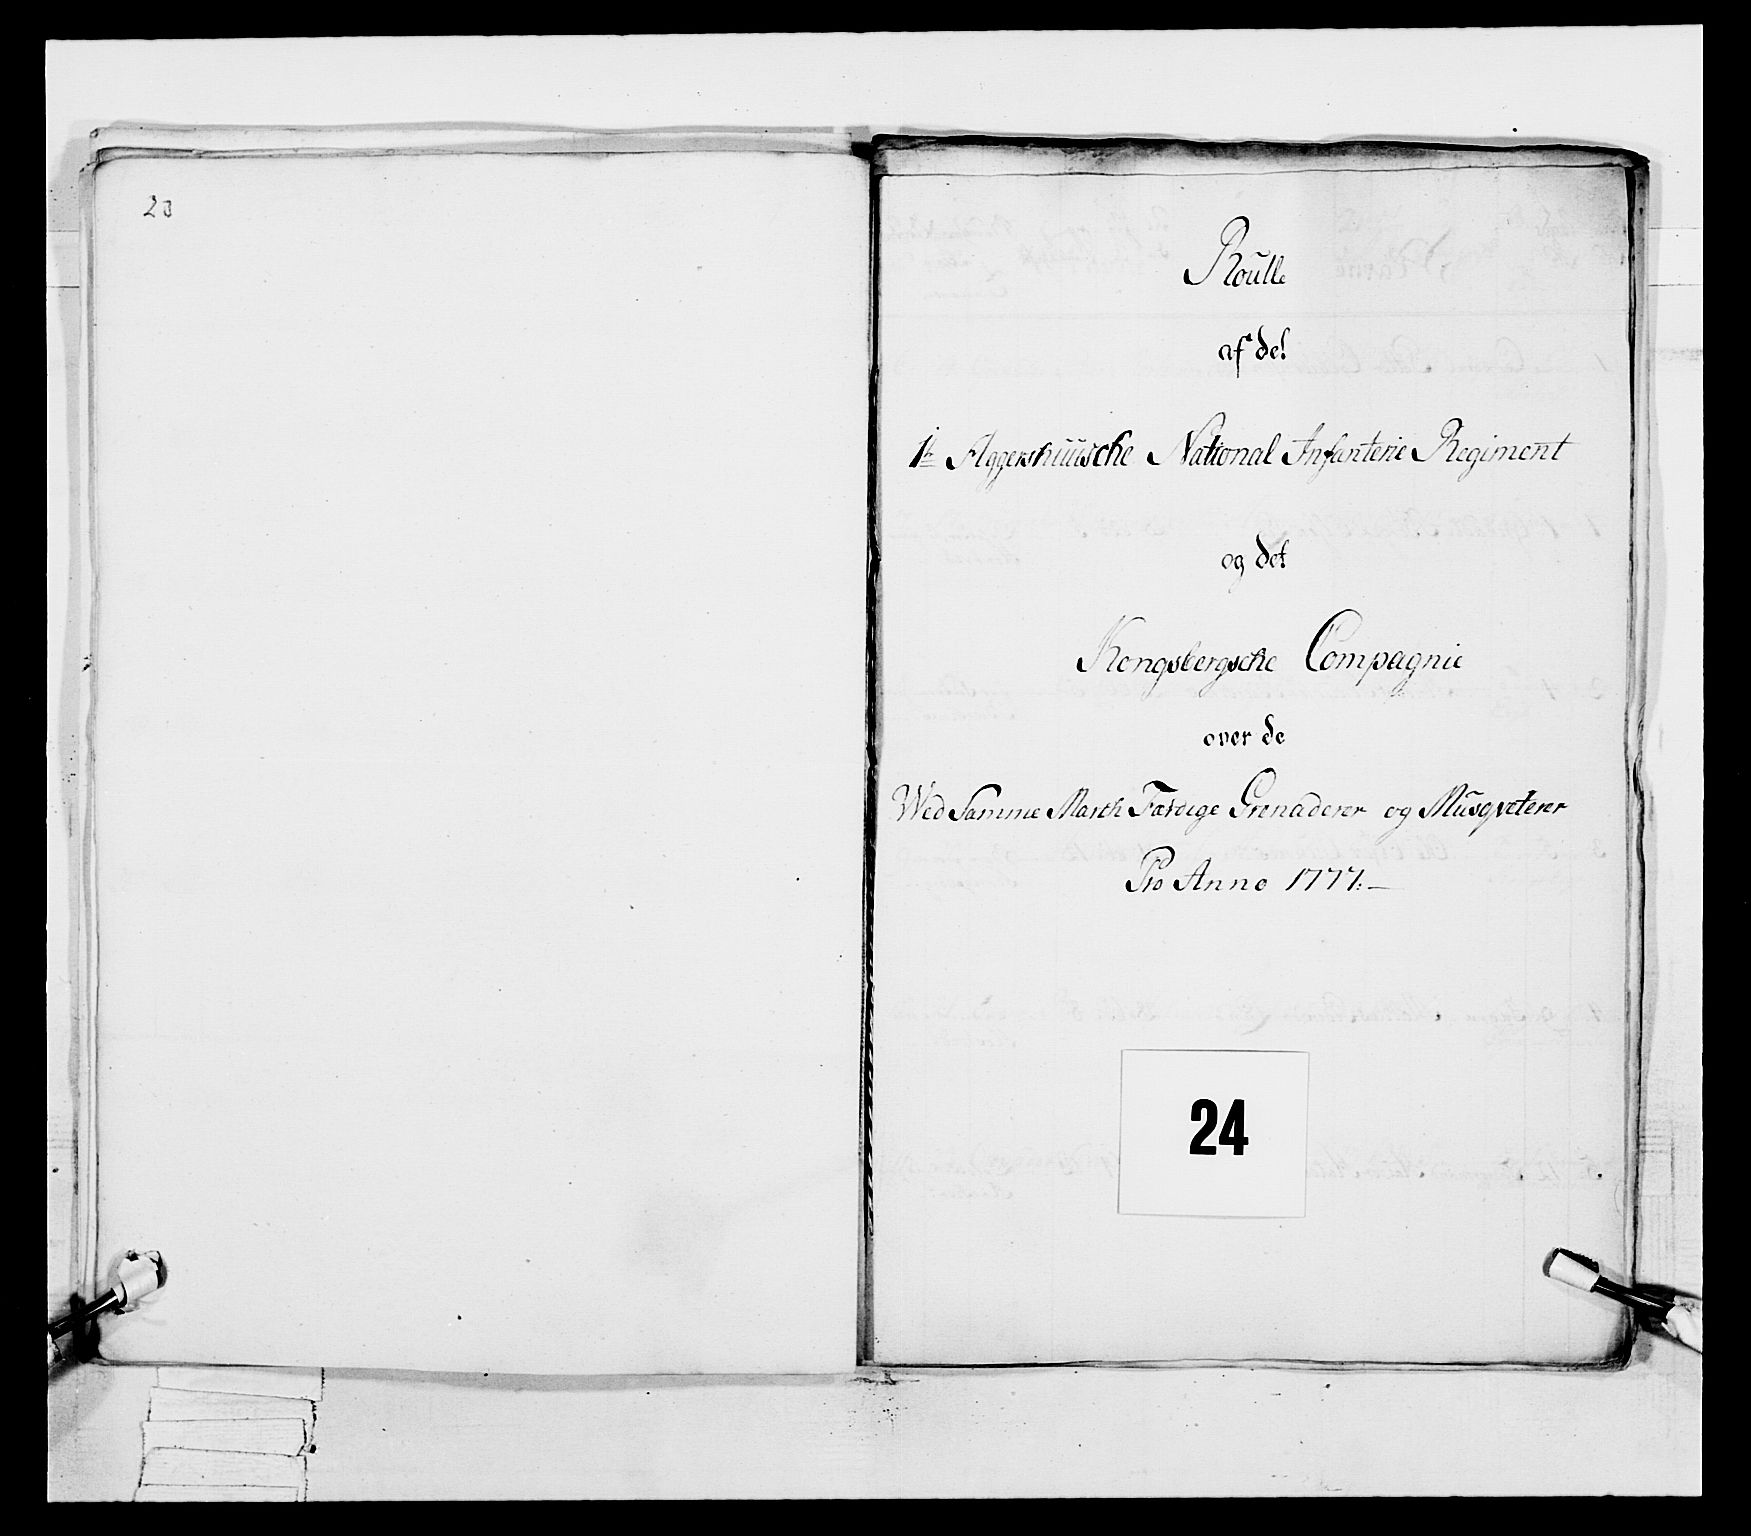 23
Roulle
af det
1te Aggershuusche National Infanterie Regiment
og det
Kongsbergsche Compagnie
over de
Wed Samme March Færdige Grenaderer og Musqveterer
Pro Anno 1777:—
24